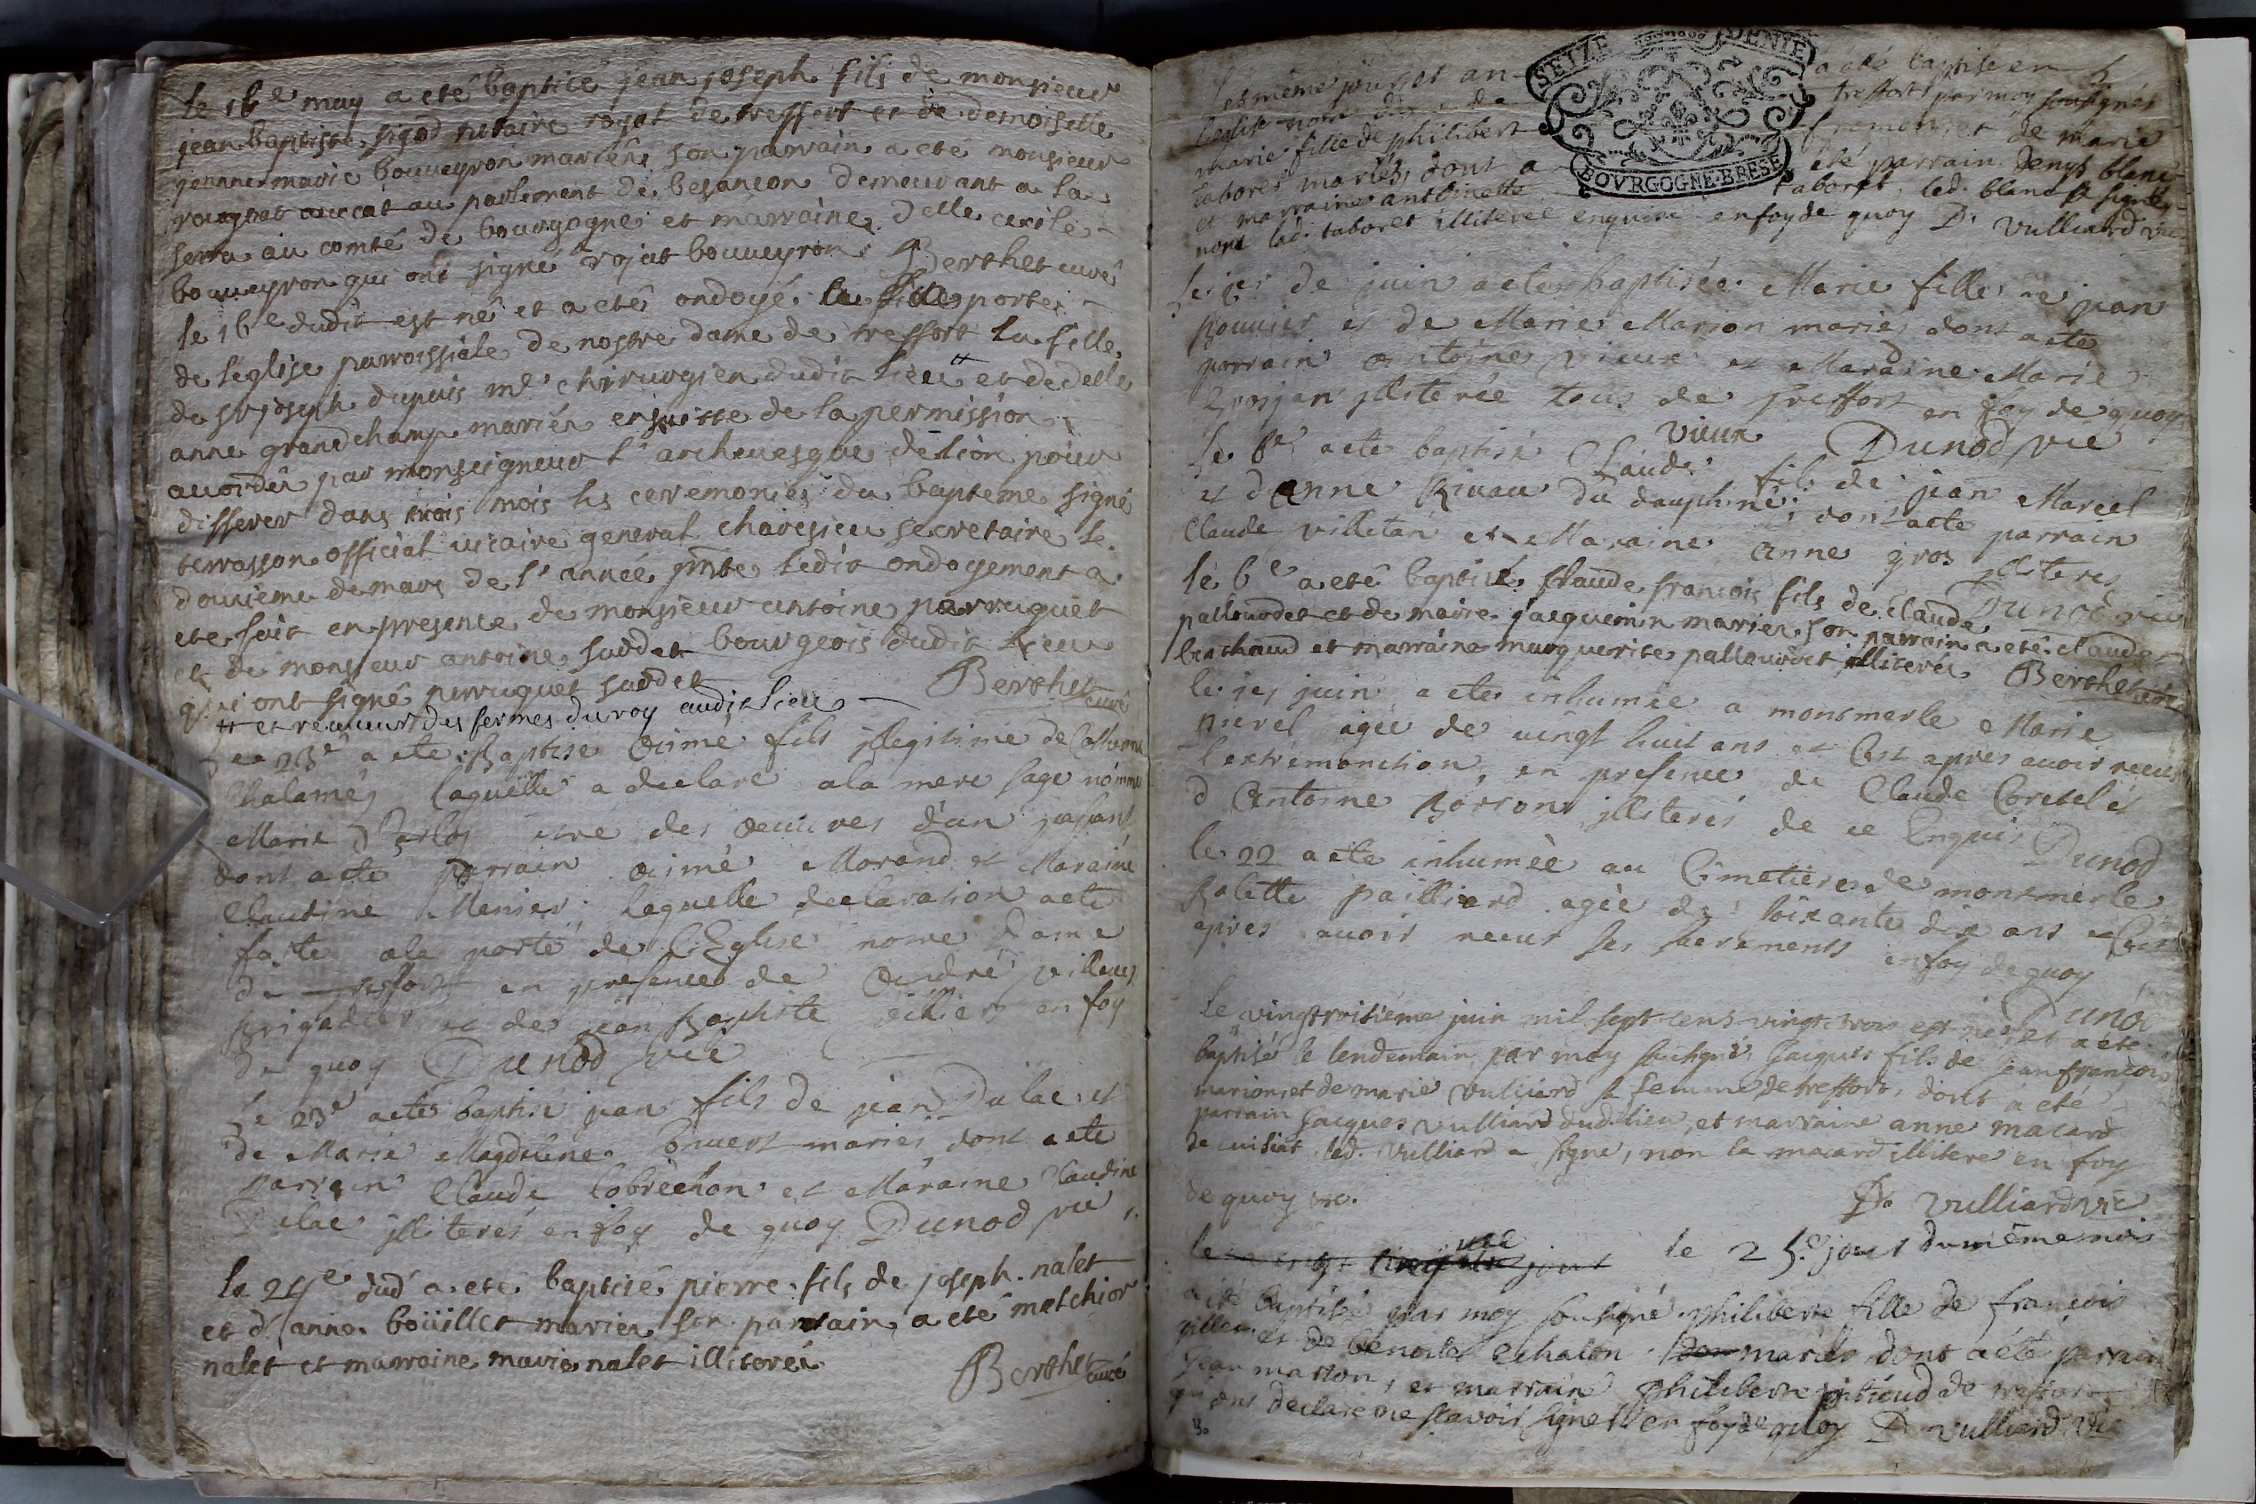 le 16e may a eté baptisé jean joseph fils de monsieur
jean baptiste sigod notaire royal de treffort et de demoiselle
jeanne marie bouueyron mariés, son parrain a eté monsieur
auocat au parlement de besancon demeurant a la
serra au comté de bourgogne et marraine delle cecile
bouueyron qui ont signé rojat bouueyron Berthet curé
le 16e dudit est né et a eté ondoyé porte
de l'eglise parroissiale de nostre dame de treffort la fille
de sr joseph dupuis me chirurgien dudit lieu # et de delle
anne grandchamp mariés ensuitte de la permission
accordée par monseigneur l'archeuesque de lion pour
differer dans trois mois les ceremonies du bapteme signé
terrasson official vicaire general secretaire le
douzieme de mars de l'année pnte ledit ondoyement a
eté fait en presence de monsieur antoine perruquet
et de monsieur antoine suddet bourgeois dudit lieu
qui ont signé perruquet suddet Berthet curé
# et receueur des fermes du roy audit lieu
Le 23e a ete Baptisé Aimé fils jllegitime de
laquelle a declaré a la mere sage nommé
Marie estre des oeuures d'un passant
dont a ete parrain aimé Morand et Maraine
Claudine Menier; laquelle declaration a ete
faite a la porte de l'Eglise notre Dame
de treffort en presence de André
Brigadier et de jean Baptiste en foy
de quoy Dunod vic
Le 23e a ete baptisé jean fils de jean Dulac et
de Marie Magdeleine mariés dont a ete
parrain Claude et Maraine Claudine
Dulac jlliterés en foy de quoy Dunod vic
le 24e dud a eté baptisé pierre fils de joseph nalet
et d'anne boüillet mariés son parrain a eté melchior
nalet et marraine marie nalet illiterés
Berthet curé
SEIZE DENIE
BOVRGOGNE·BRESSE
Les même jour et an a été baptisé en
l'eglise notre dame de treffort par moy soussigné
marie fille de philibert et de marie
taboret mariés, dont a été parrain denys blanc
et marraine anthoinette taboret, led. blanc a signé
non lad. taboret illiteree enquise en foy de quoy D. Vulliard vic
Le jer de juin a ete baptisée Marie fille de jean
Bouuier et de Marie Marion mariés dont a ete
parrain antoine vieux et Maraine Marie
Grosjan jlliterée tous de treffort en foy de quoy
vieux Dunod vic
Le 6e a ete baptisé Claude fils de jean Marcel
et d'anne Riuau du dauphiné; dont a ete parrain
Claude villetan et Maraine anne gros jlliteres
Dunod vic
le 6e a eté baptisé claude francois fils de claude
pallouodet et de marie jacquemin mariés son parrain a eté claude
brachaud et marraine marguerite pallouodet illiterés Berthet curé
le jer juin a ete inhumée a monsmerle Marie
agée de vingt huit ans et Cest apres auoir receu
l'extrémonction, en presence de Claude
d'Antoine jlliterés de ce Enquis Dunod
le 22 a ete inhumée au Cimetiere de monsmerle
pailliard agée de soixante dix ans et Cest
apres auoir receut ses sacrements en foy de quoy
Dunod
Le vingtroisième juin mil sept cens vingt trois est né, et a eté
baptisé le lendemain par moy soussigné Jacques fils de jean françois
marion et de marie Vulliard sa femme de treffort, dont a eté
parrain Jacques Vulliard dud. lieu, et marraine anne macard
de cuisiat led. Vulliard a signé, non la macard illitere en foy
de quoy &c.
D. Vulliard vic
le vingt jour le 25e jour du même mois
a eté baptisé par moy soussigné philiberte fille de françois
et de benoite echalon mariés dont a eté parrain
Jean marion, et marraine philiberte de treffort
qui ont declaré ne scavoir signer en foy de quoy D. Vulliard vic